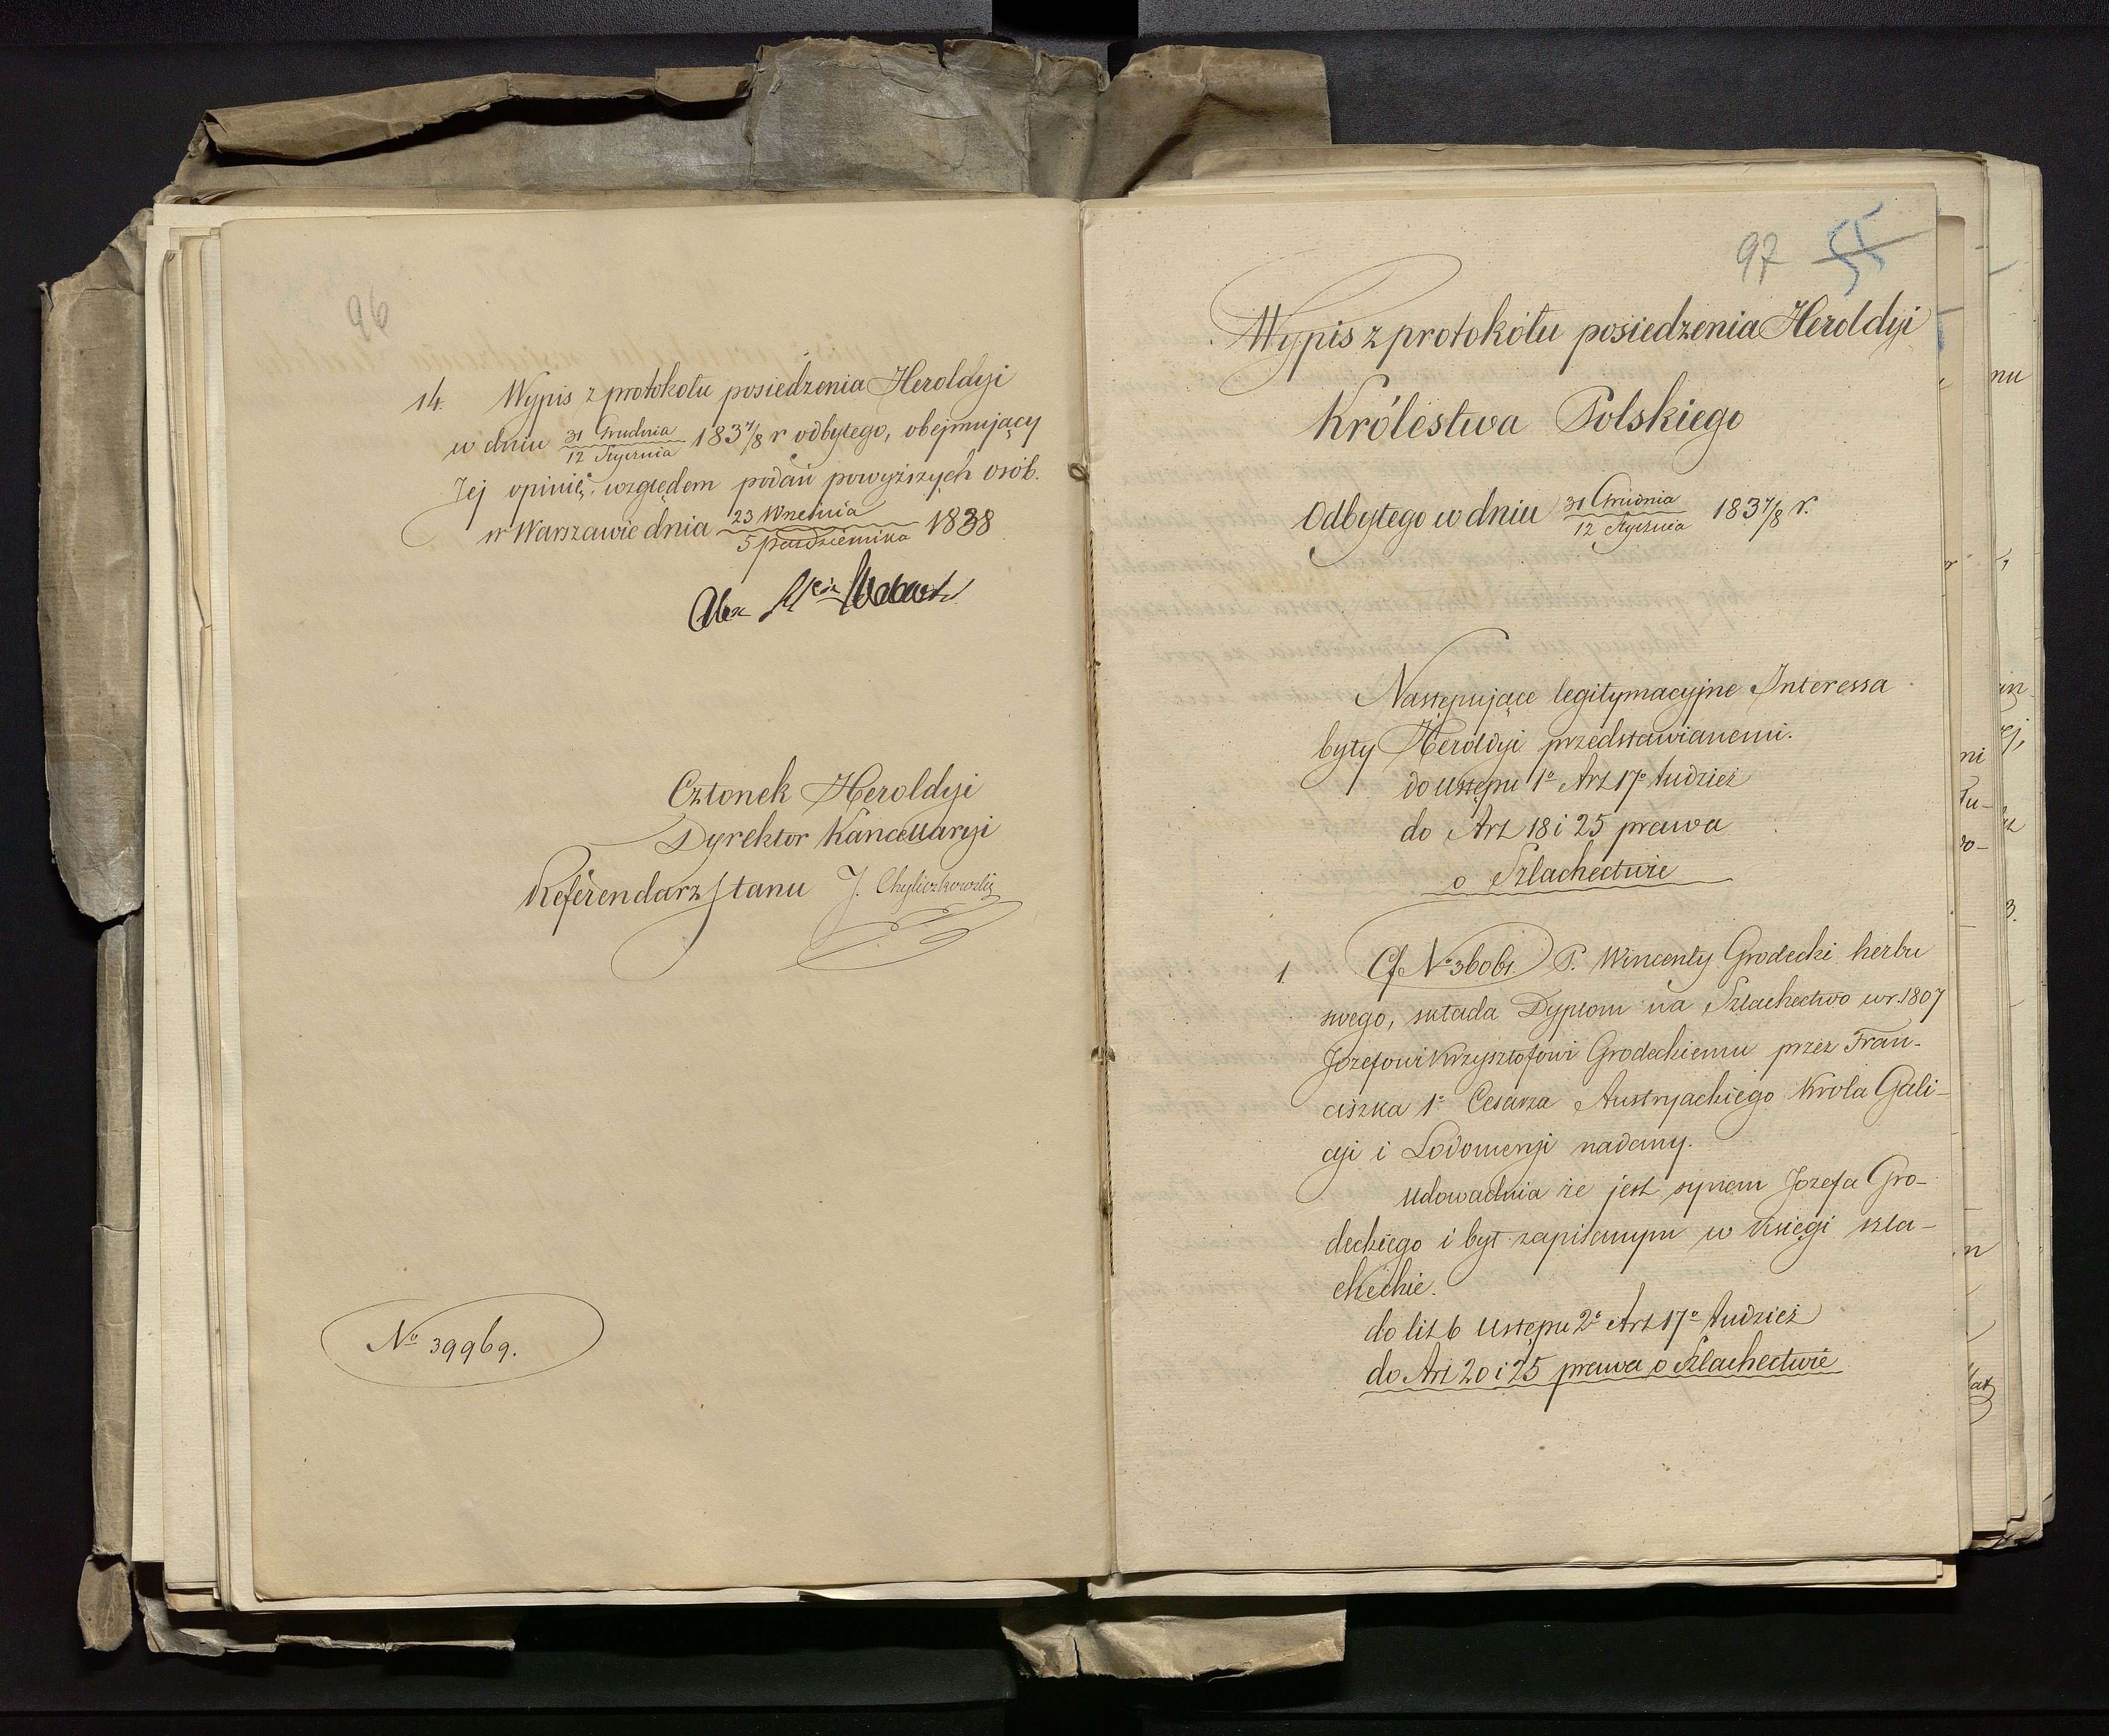 96
14. Wypis z protokołu posiedzenia Heroldyi
w dniu 31 Grudnia / 12 Stycznia 1837/8 r odbytego, obejmujący
Jej opinię, względem podań powyższych osób.
w Warszawie dnia 23 Września / 5 października 1838
Członek Heroldyi
Dyrektor Kancellaryi
Referendarz Stanu J. Chyliczkowski
No 39969.
97 55
Wypis z protokółu posiedzenia Heroldyi
Królestwa Polskiego
Odbytego w dniu 31 Grudnia / 12 Stycznia 1837/8 r.
Następujące legitymacyjne Interessa
były Heroldyi przedstawianemi.
do Ustępu 1o Art 17o tudzież
do Art 18 i 25 prawa
o Szlachectwie
1 Cf No 36061. P. Wincenty Grodecki herbu
swego, składa Dyplom na Szlachectwo w r. 1807
Józefowi Krzysztofowi Grodeckiemu przez Fran-
ciszka 1o Cesarza Austryackiego Króla Gali-
cyi i Lodomeryi nadany.
Udowadnia że jest synem Józefa Gro-
deckiego i był zapisanym w Księgi szla-
checkie.
do lit b Ustępu 2o Art 17o tudzież
do Art 20 i 25 prawa o Szlachectwie